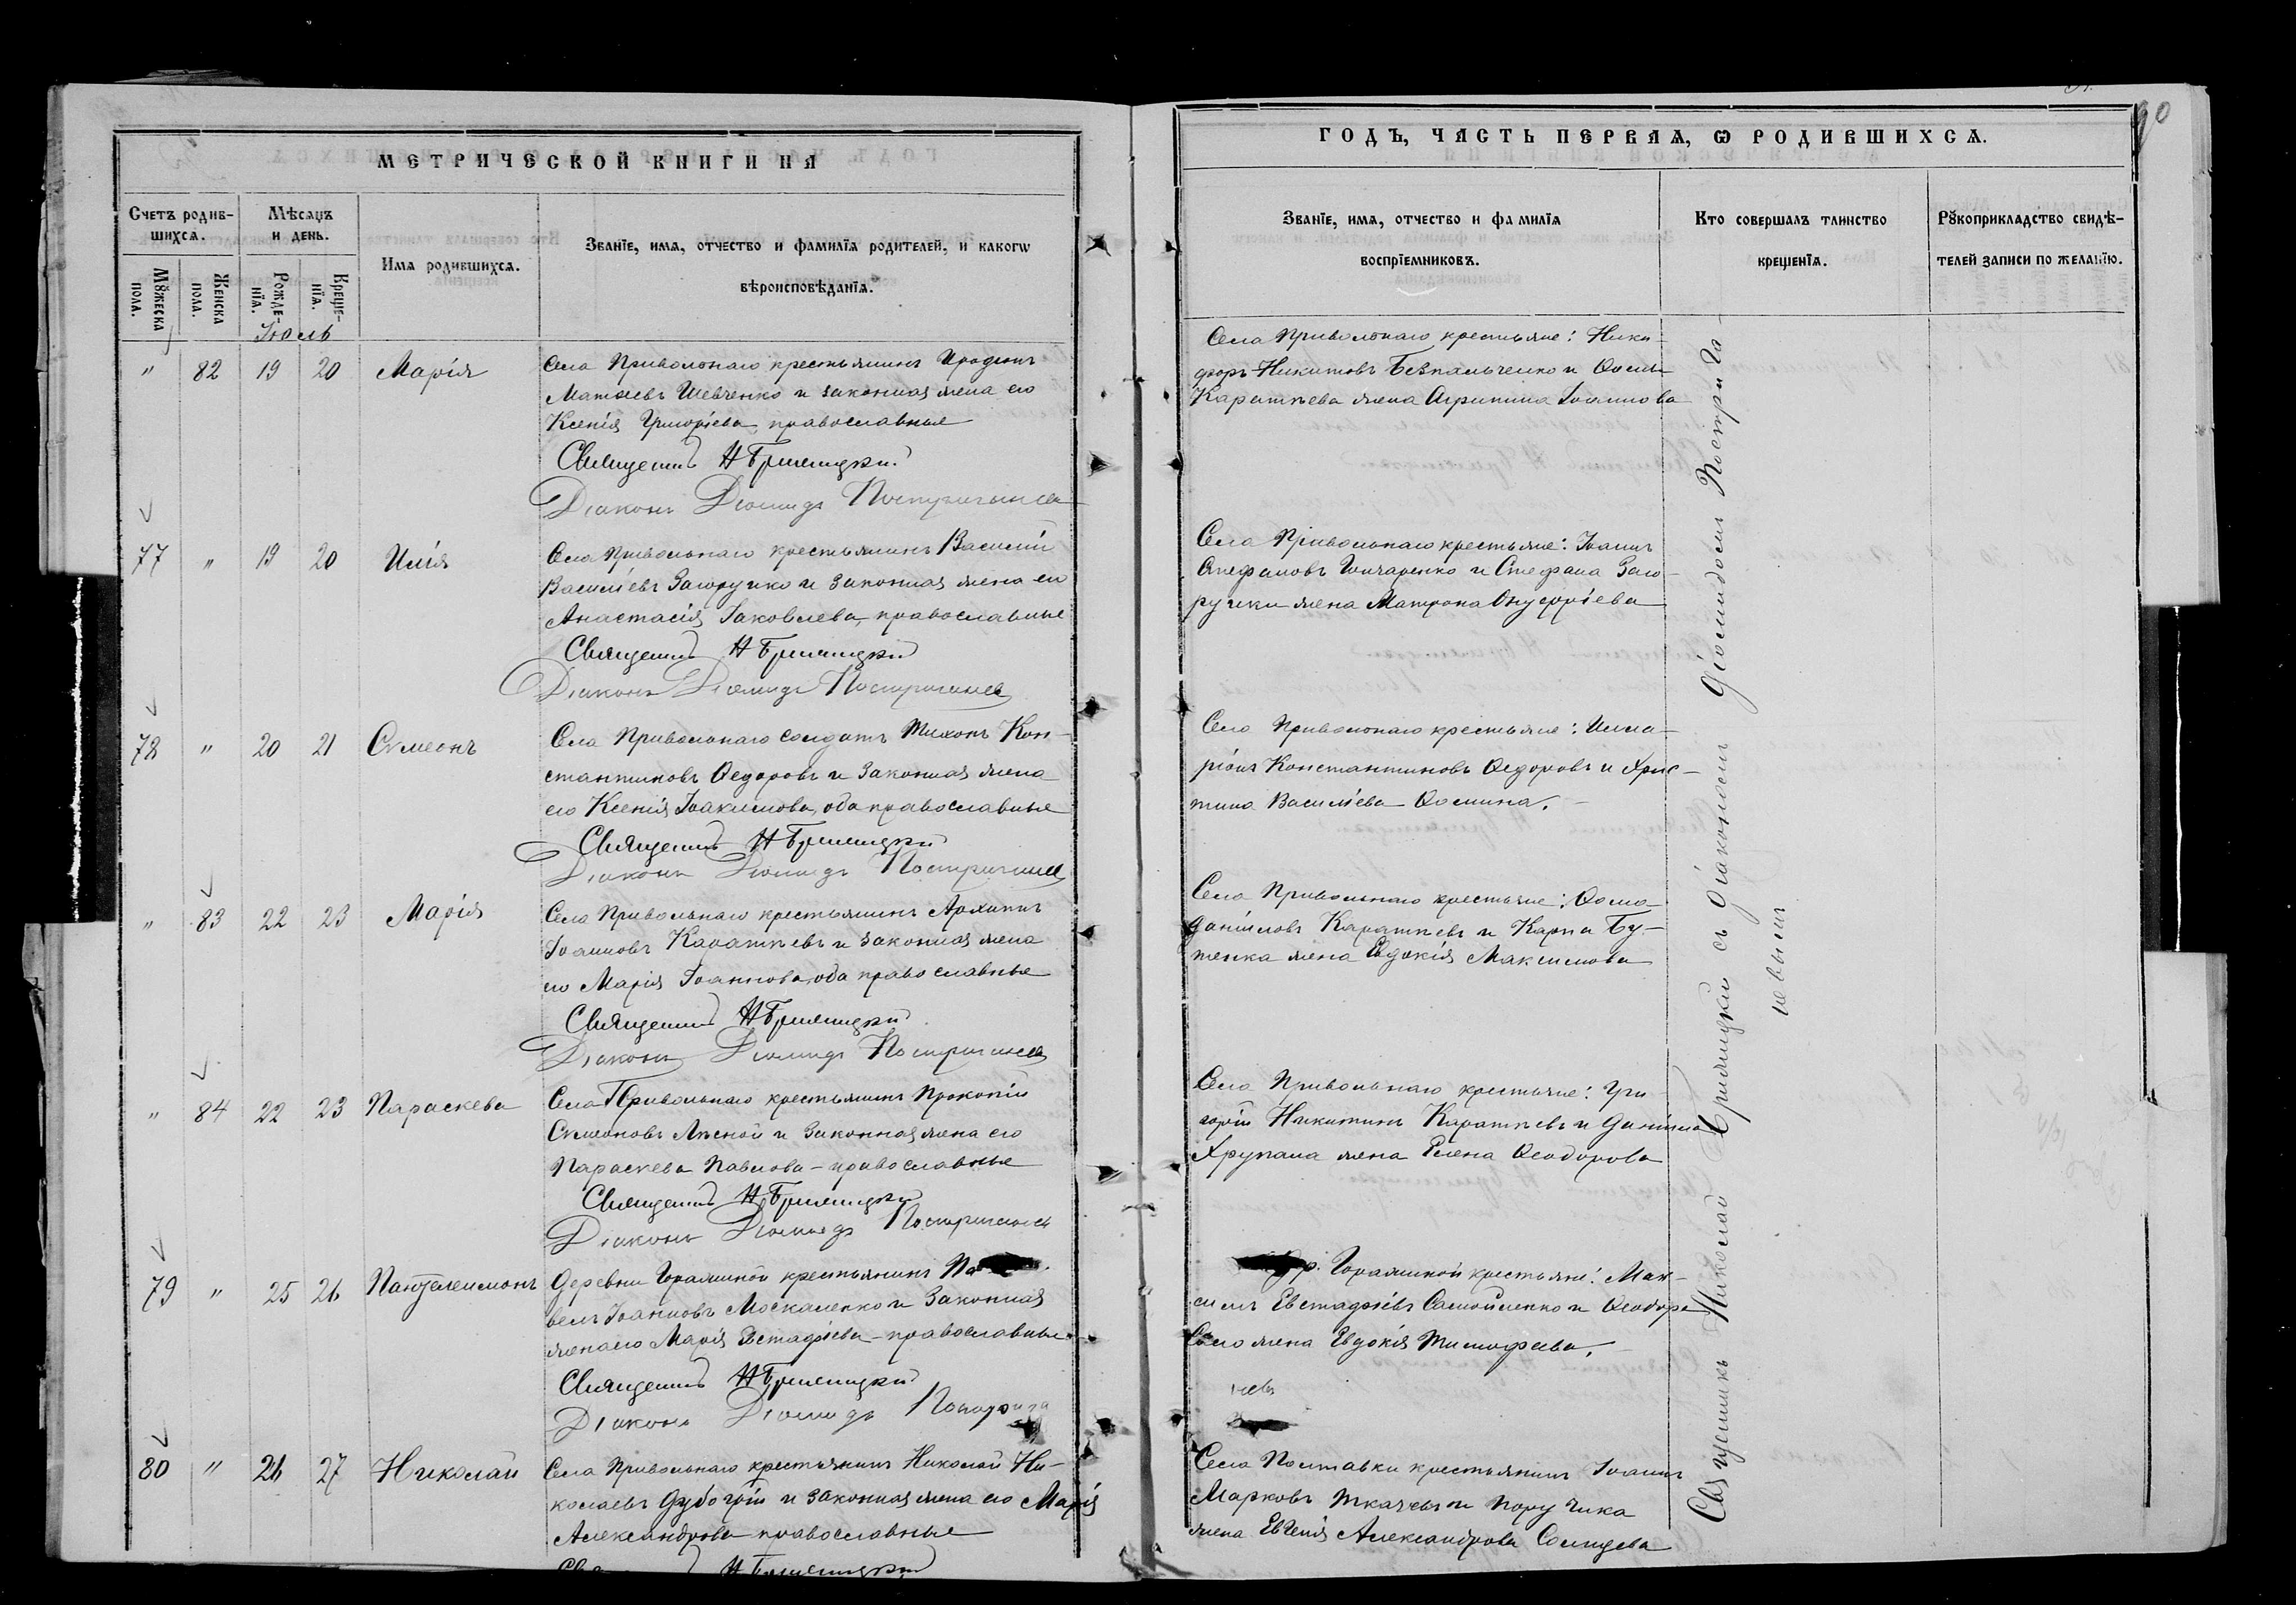 МЕТРИЧЕСКОЙ КНИГИ НА
Счетъ родив-
шихсѧ.
Мѣсѧцъ
и день.
Имѧ родившихсѧ.
Званїе, имѧ, отчество и фамилїѧ родителей, и какогѡ
вѣроисповѣданїѧ.
Мꙋжеска
пола.
Женска
пола.
Рожде-
нїѧ.
Креще-
нїѧ.
Іюль
" 82 19 20 Марія
Села Привольнаго крестьянинъ Иродіонъ
Матѳіевъ Шевченко и законная жена его
Ксенія Григоріева, православные
Священникъ Н Брилицкій
Діаконъ Діомидъ
77 " 19 20 Илія
Села Привольнаго крестьянинъ Василій
Васильевъ Загоруйко и законная жена его
Анастасія Іаковлева, православные
Священникъ Н Брилицкій
Діаконъ Діомидъ
78 " 20 21 Сѵмеонъ
Села Привольнаго солдатъ Тихонъ Кон-
стантиновъ Ѳедоровъ и законная жена
его Ксенія Іоакимова, оба православные
Священникъ Н Брилицкій
Діаконъ Діомидъ
" 83 22 23 Марія
Села Привольнаго крестьянинъ Архипъ
Іоанновъ Каратѣевъ и законная жена
его Марія Іоаннова, оба православные
Священникъ Н Брилицкій
Діаконъ Діомидъ
" 84 22 23 Параскева
Села Привольнаго крестьянинъ Прокопій
Сѵмеоновъ Лѣсной и законная жена его
Параскева Павлова - православные
Священникъ Н Брилицкій
Діаконъ Діомидъ
79 " 25 26 Пантелеимонъ
Деревни крестьянинъ Па
велъ Іоанновъ Москаленко и законная
жена его Марія Евстафіева - православные
Священникъ Н Брилицкій
Діаконъ Діомидъ
80 " 26 27 Николай
Села Привольнаго крестьянинъ Николай Ни-
колаевъ и законная жена его Марія
Александрова православные
Н Брилицкій
90
ГОДЪ, ЧАСТЬ ПЕРВАѦ, Ѡ РОДИВШИХСѦ.
Званїе, имѧ, отчество и фамилїѧ
воспрїемниковъ.
Кто совершалъ таинство
крещенїѧ.
Рꙋкоприкладство свидѣ-
телей записи по желанїю.
Села Привольнаго крестьяне: Ники-
форъ Никитовъ Безпальченко и Ѳомы
Каратѣева жена Агрипина Іоаннова
Села Привольнаго крестьяне: Іоаннъ
Стефановъ Гончаренко и Стефана Заго-
руйки жена Матрона Онуфріева
Села Привольнаго крестьяне: Илла-
ріонъ Константиновъ Ѳедоровъ и Хрис-
тина Васильева Ѳомина.
Села Привольнаго крестьяне: Ѳома
Даніиловъ Каратѣевъ и Карпа Бу-
тенка жена Евдокія Максимова
Села Привольнаго крестьяне: Гри-
горій Никитинъ Каратѣевъ и Даніила
Хрупала жена Елена Ѳеодорова
крестьяне: Мак-
симъ Евстафіевъ Самойленко и Ѳеодора
жена Евдокія Тимофеева.
Села Полтавки крестьянинъ Іоаннъ
Марковъ Ткачевъ и поручика
жена Евгенія Александрова Солнцева
Священникъ Николай Брилицкій съ діакономъ Діомидомъ Пострига-
невымъ